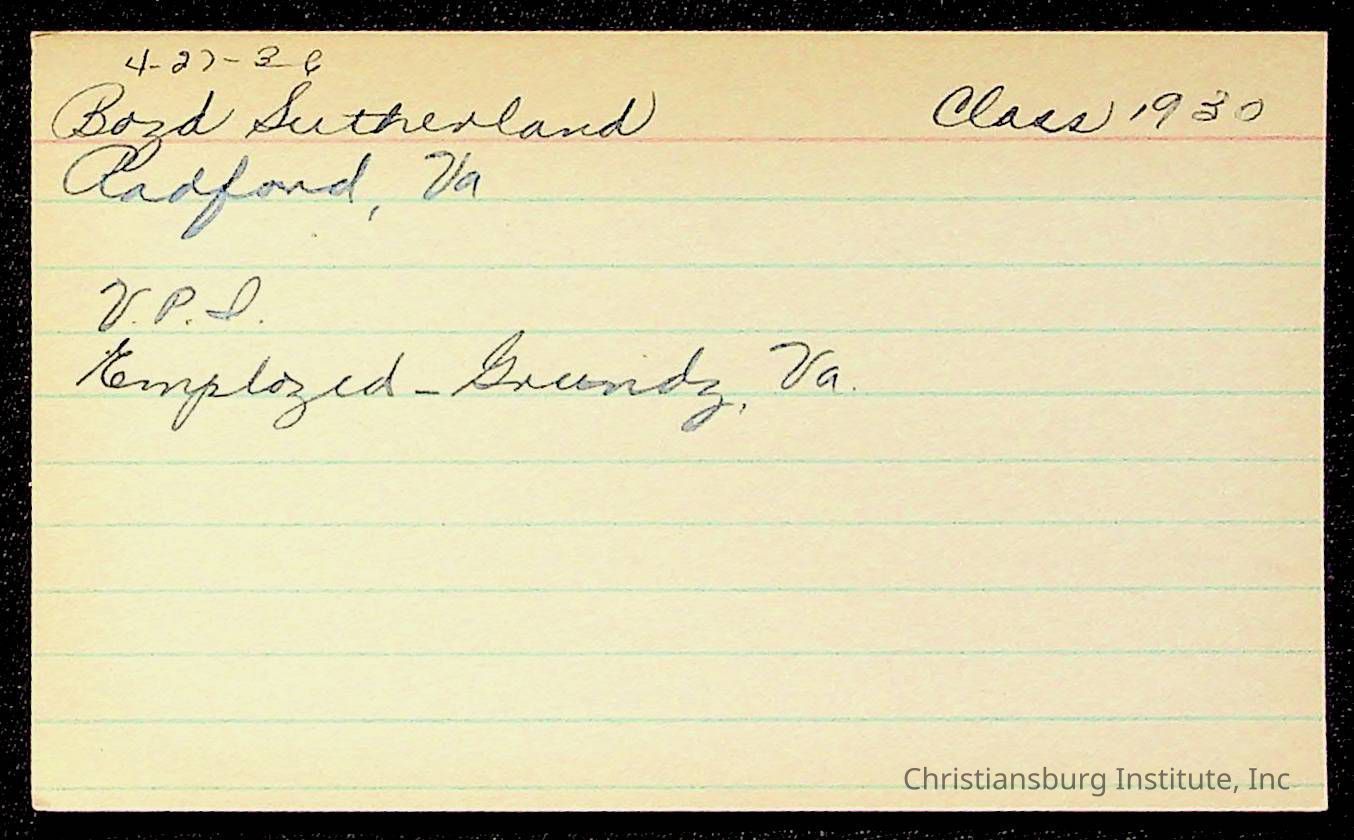 4-27-36
Boyd Sutherland Class 1930
Radford, Va
V.P.I.
Employed - Grundy, Va.
Christiansburg Institute, Inc